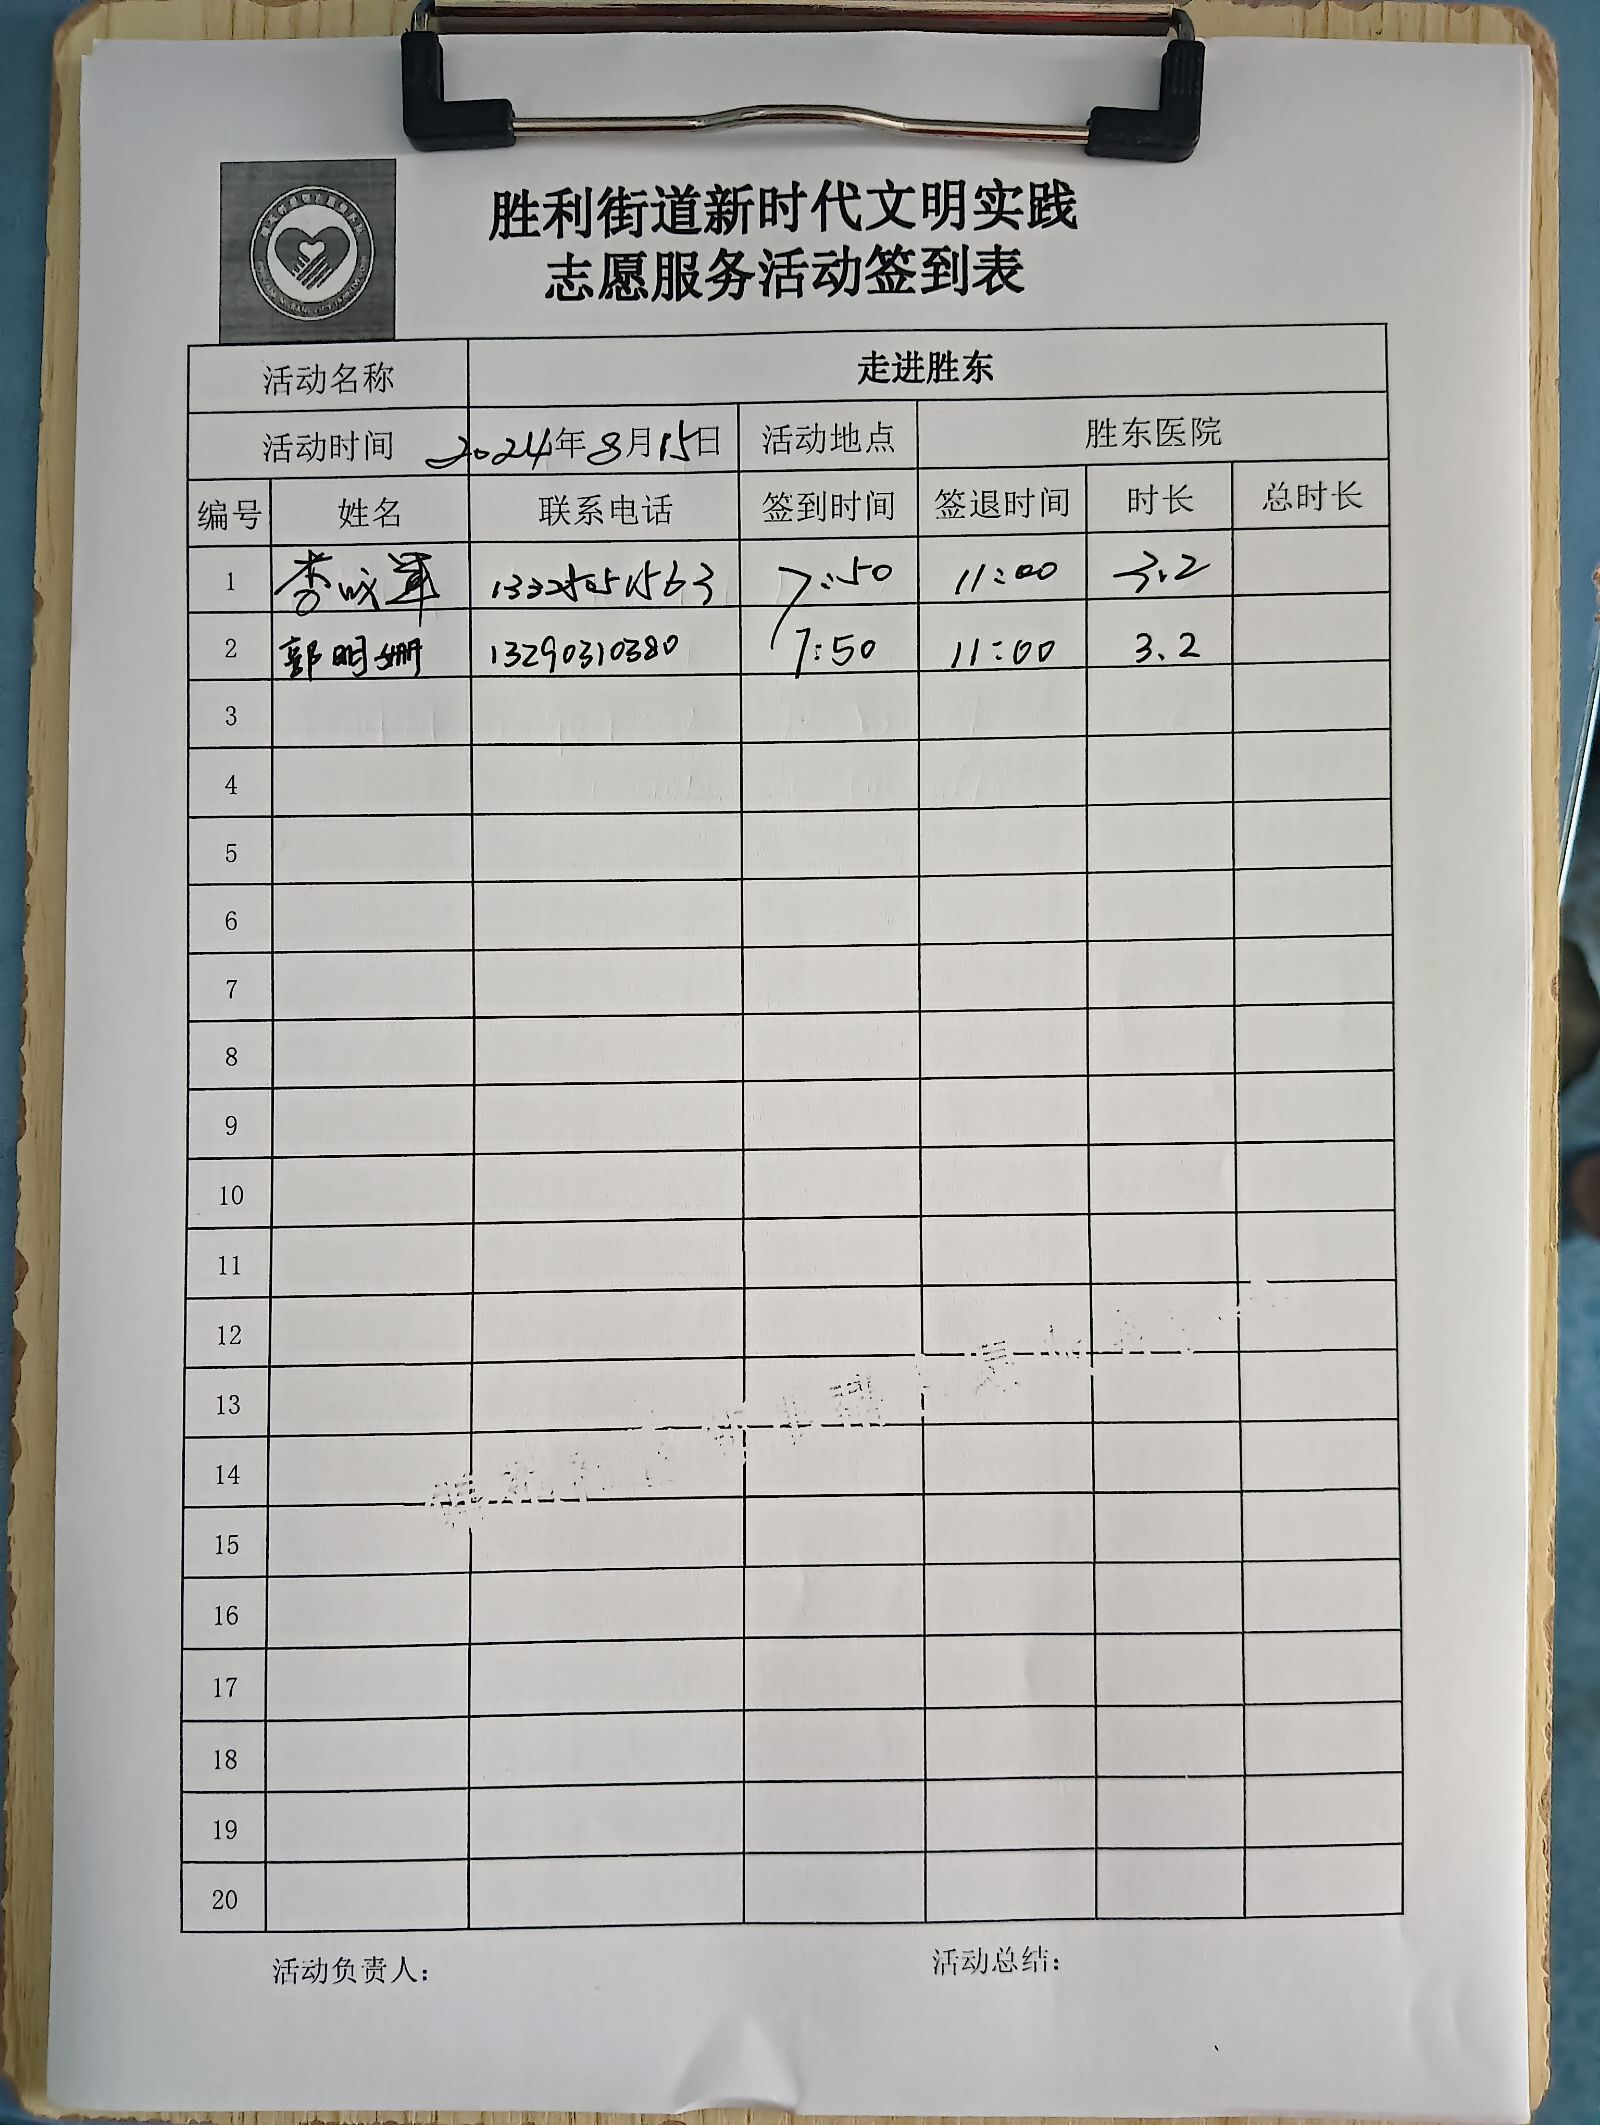 胜利街道新时代文明实践
志愿服务活动签到表
活动名称 走进胜东
活动时间 2024年8月15日 活动地点 胜东医院
编号 姓名 联系电话 签到时间 签退时间 时长 总时长
1 7:50 11:00 3.2
2 郭明姗 13290310380 7:50 11:00 3.2
3
4
5
6
7
8
9
10
11
12
13
14
15
16
17
18
19
20
活动负责人： 活动总结：